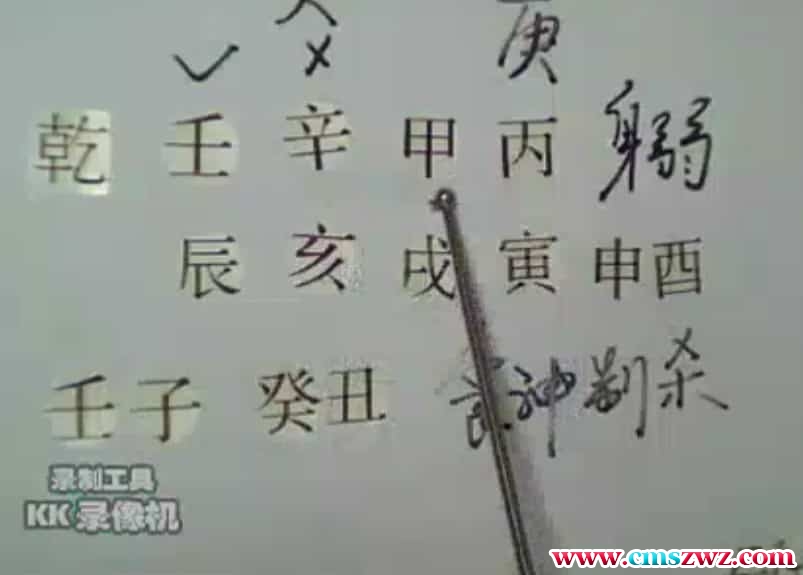 庚
乾 壬 辛 甲 丙 身弱
辰 亥 戌 寅 申酉
壬子 癸丑 食神制杀
录制工具
KK 录像机
www.cmszwz.com